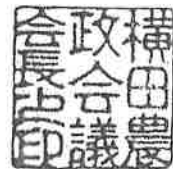 横田農
政会議
会長之印